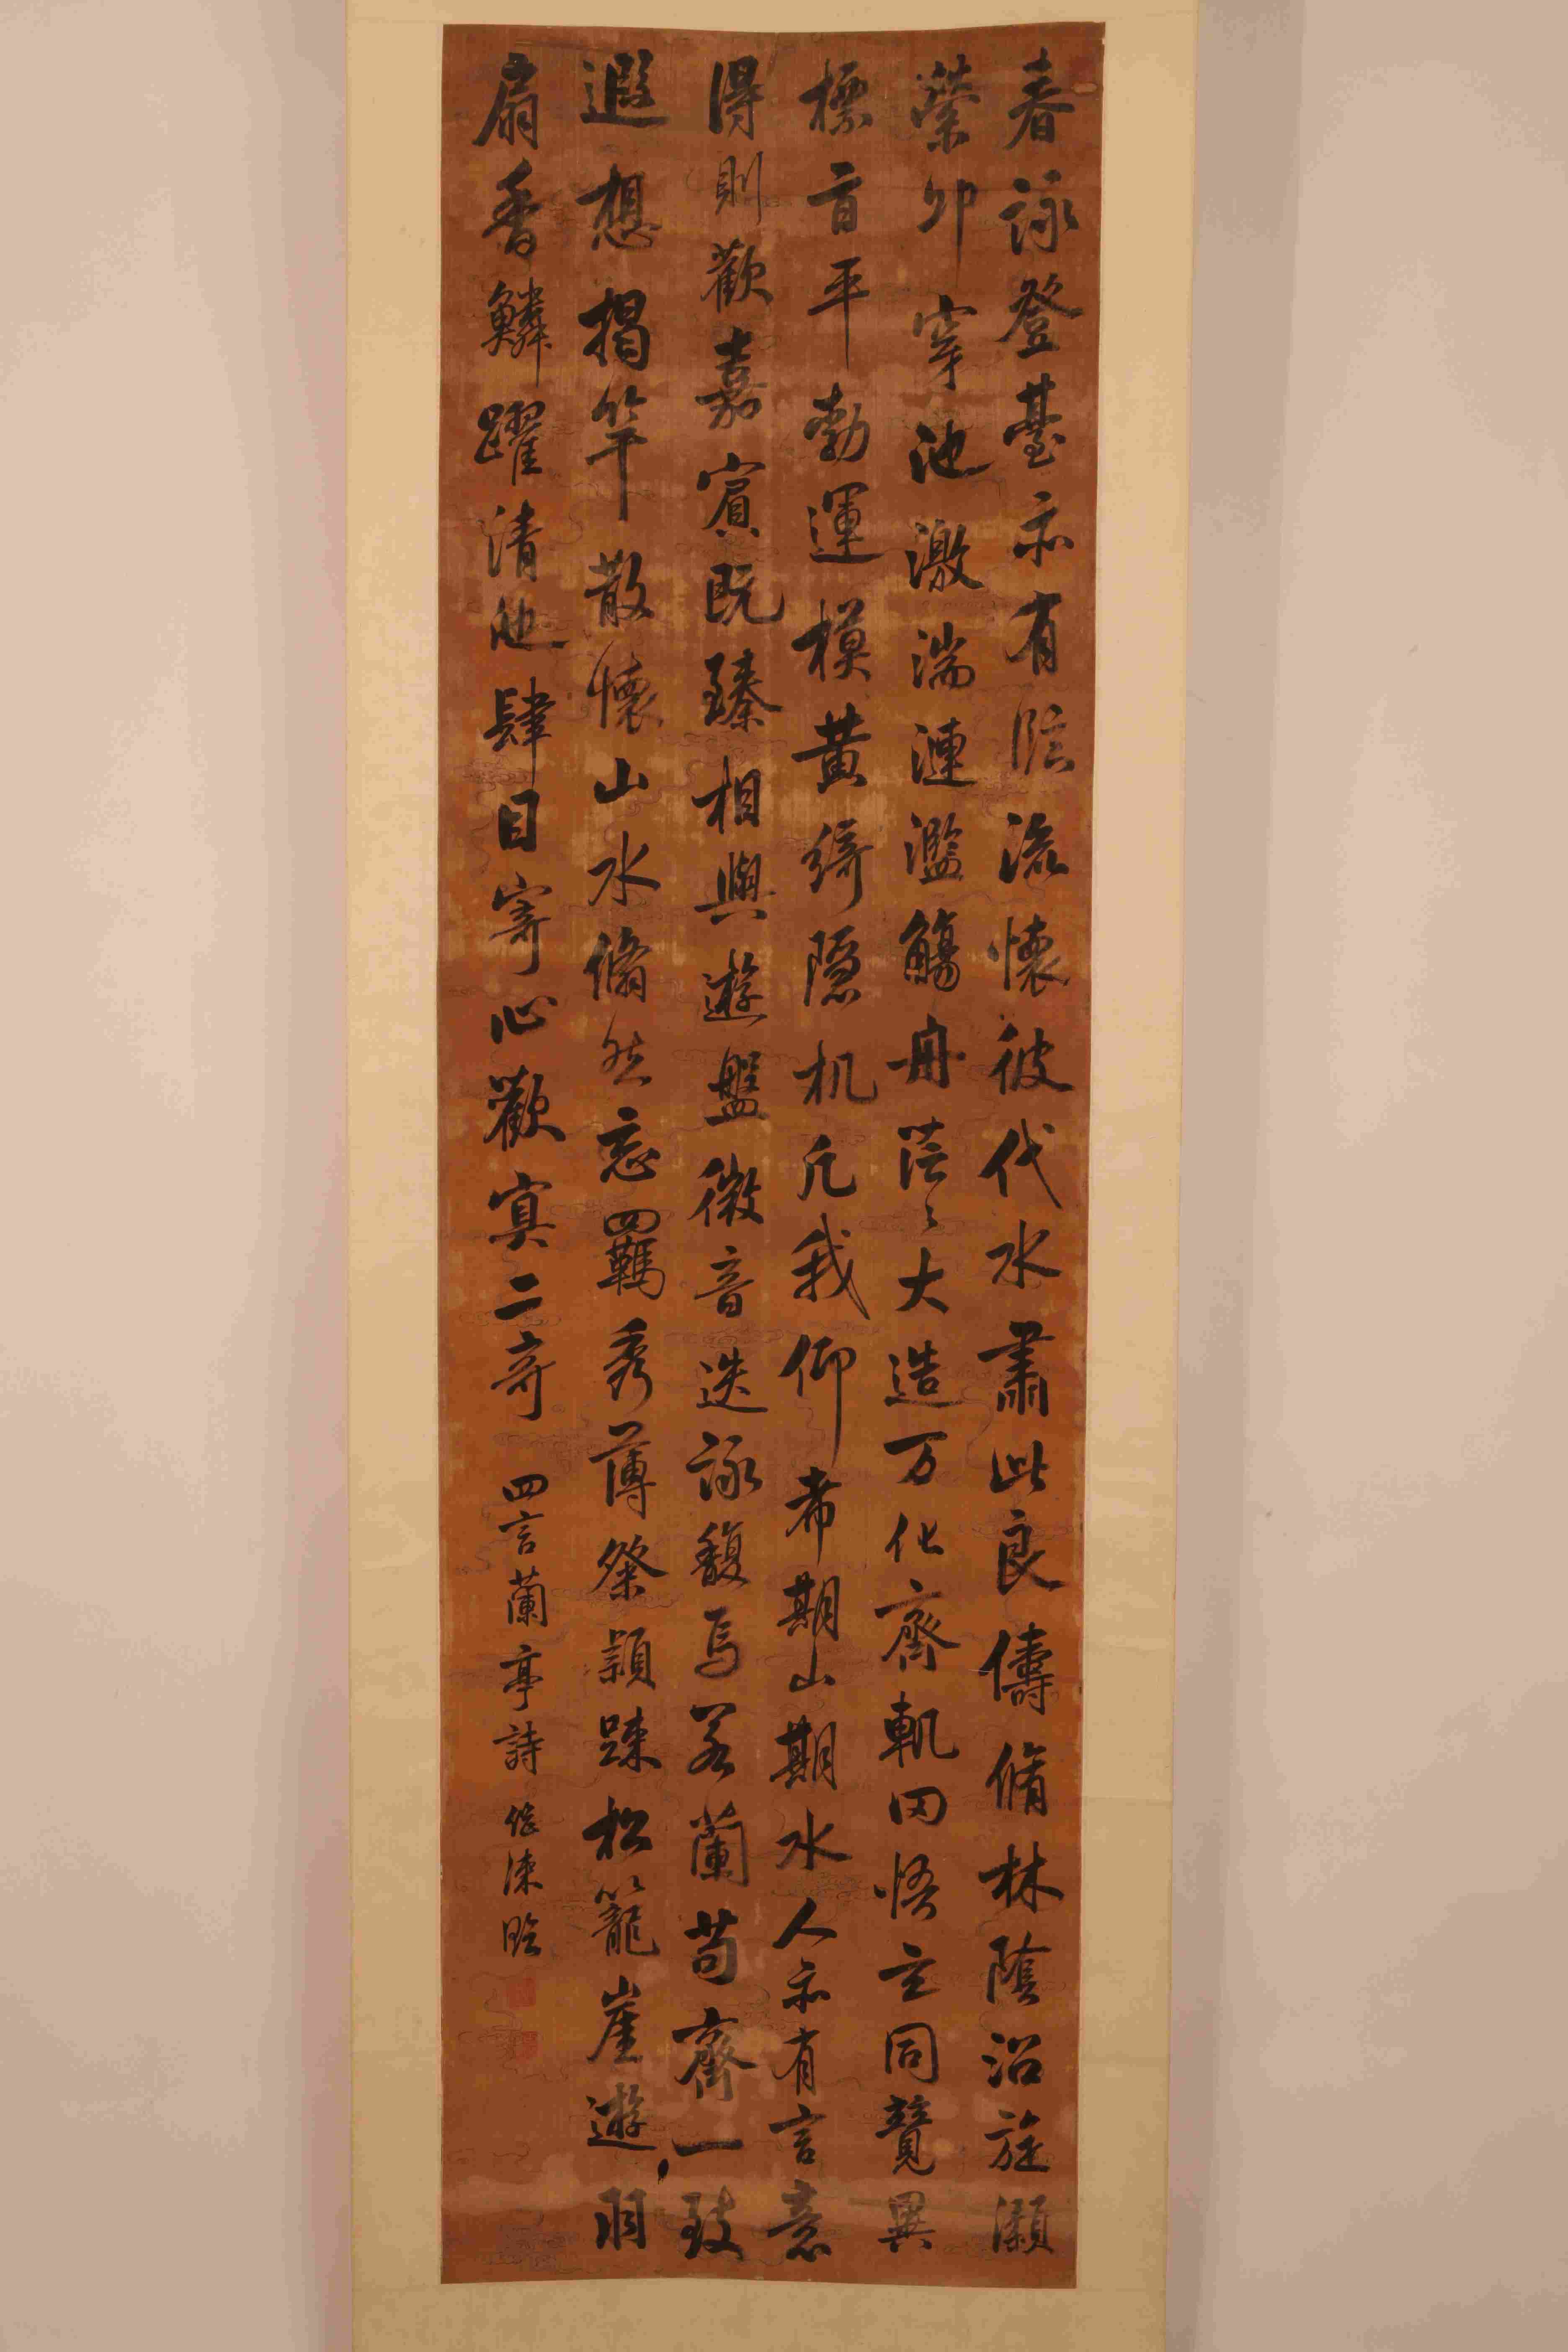 春詠登臺亦有臨流懷彼伐木肅此良儔脩林陰沼旋瀨
縈丘穿池激湍連濫觴舟茫〻大造万化齊軌罔悟玄同競異
標旨平勃運模黃綺隱机凡我仰希期山期水人亦有言意
得則歡嘉賓既臻相與遊盤微音迭詠馥焉若蘭苟齊一致
遐想揭竿散懷山水翛然忘羈秀薄粲穎踈松籠崖遊羽
扇霄鱗躍清池肆目寄心歡寞二奇
四言蘭亭詩 陳